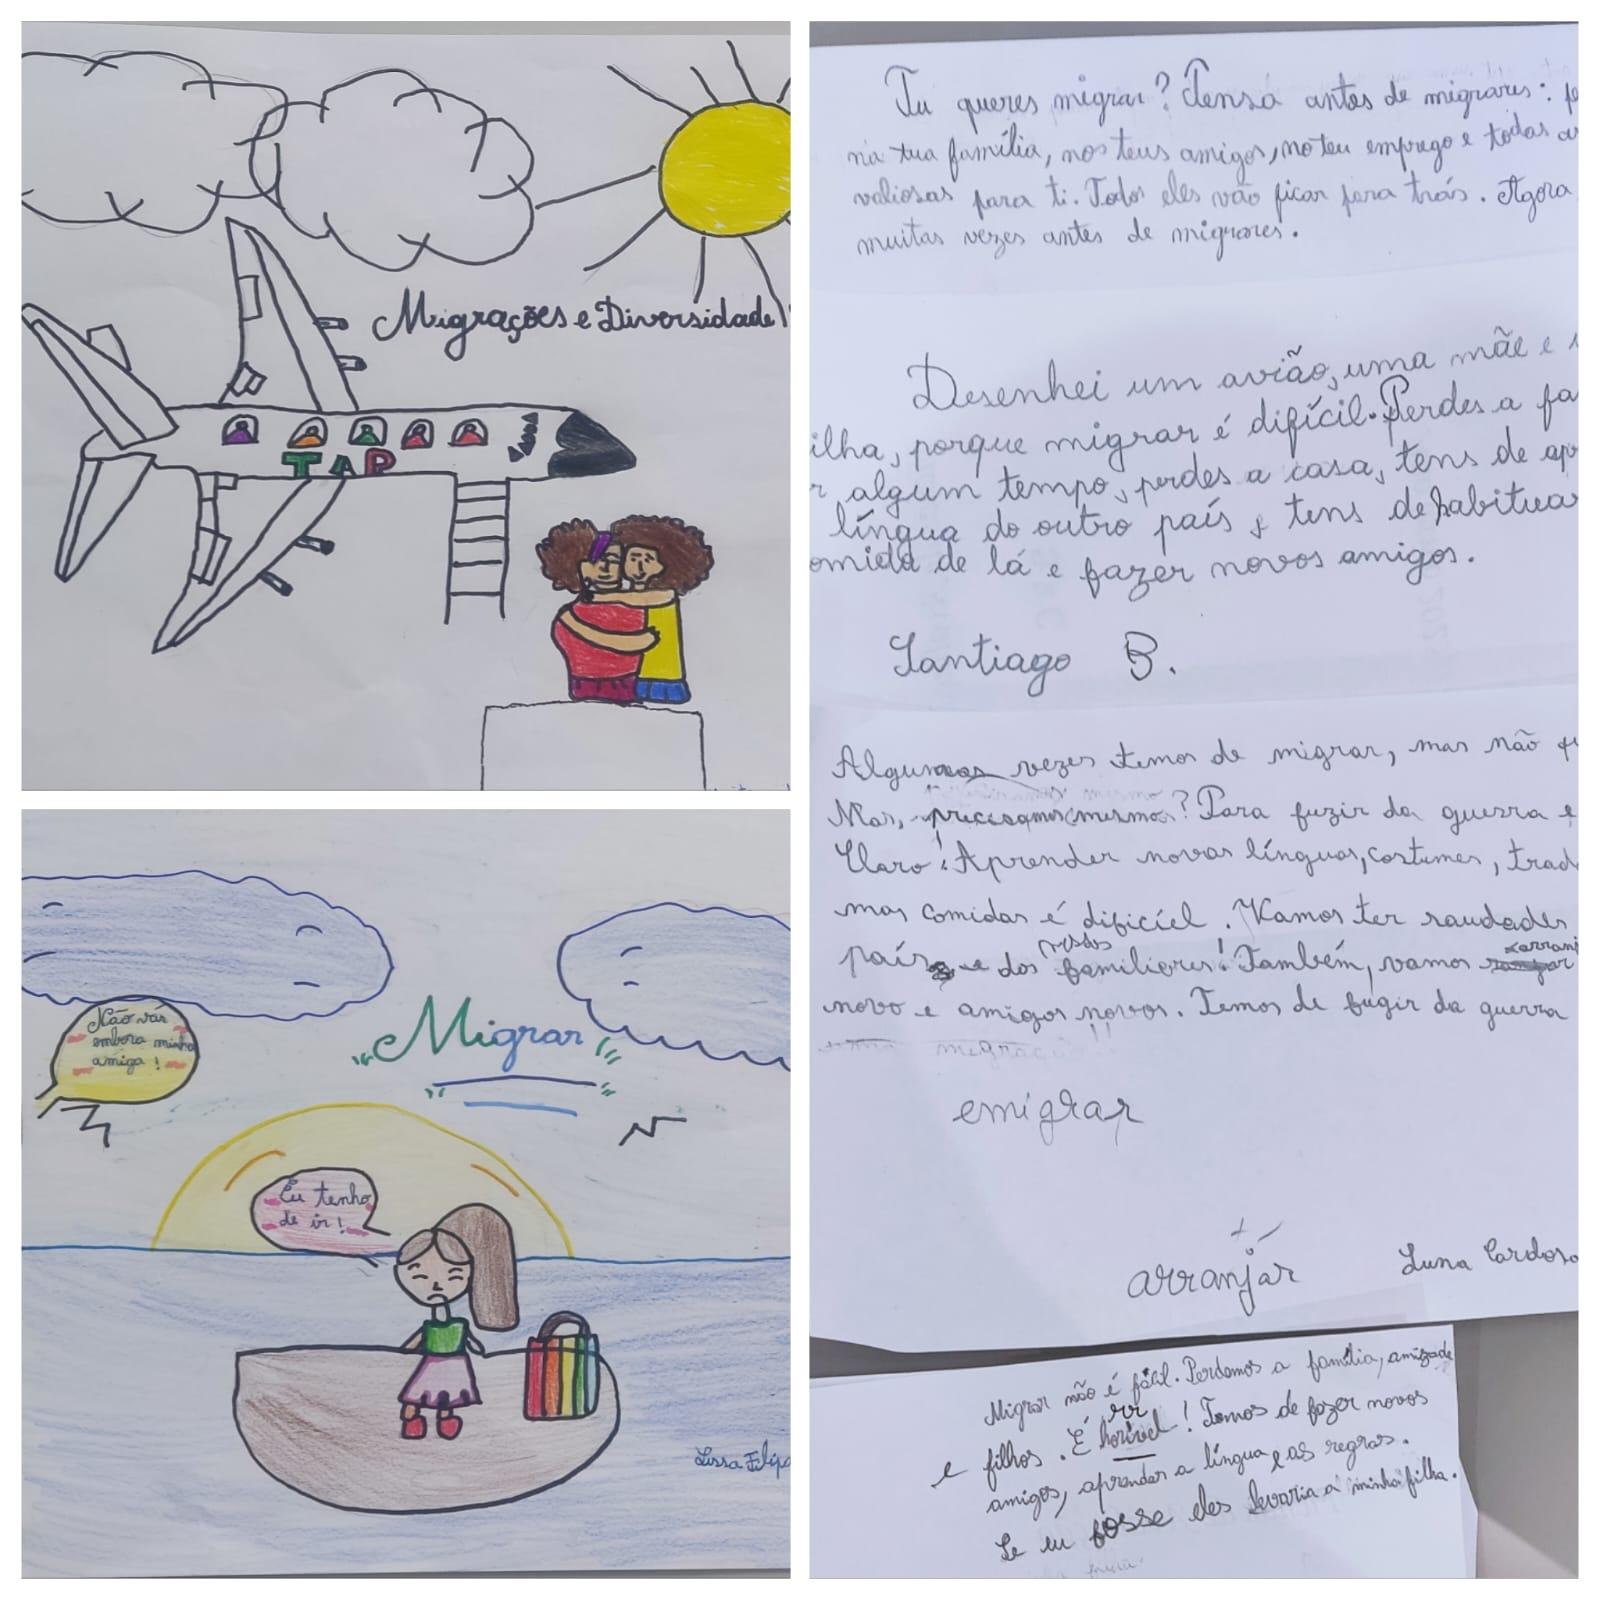 Migrações e Diversidade
TAP
Não vás
embora minha
amiga!
Migrar
Eu tenho
de ir!
Lissa Filipa
Tu queres migrar? Pensa antes de migrares:
na tua família, nos teus amigos, no teu emprego e todas as
valiosas para ti. Todos eles vão ficar para trás. Agora
muitas vezes antes de migrares.
Desenhei um avião, uma mãe e
ilha, porque migrar é difícil. Perdes a fa
r algum tempo, perdes a casa, tens de apr
língua do outro país e tens de habituar
omida de lá e fazer novos amigos.
Santiago B.
Algumas vezes temos de migrar, mas não
Mas, precisamos mesmo? Para fuzir da guerra e
Claro! Aprender novas línguas, costumes, trad
mas comidas é dificíel. Vamos ter saudades
país e dos nossos familiares! Também, vamos arranj
novo e amigos novos. Temos de fugir da guerra
migração!!
emigrar
arranjar
Luna Cardoso
Migrar não é fácil. Perdemos a família, amizade
e filhos. É horrivel! Temos de fazer novos
amigos, aprender a língua e as regras.
Se eu fosse eles levaria a minha filha.